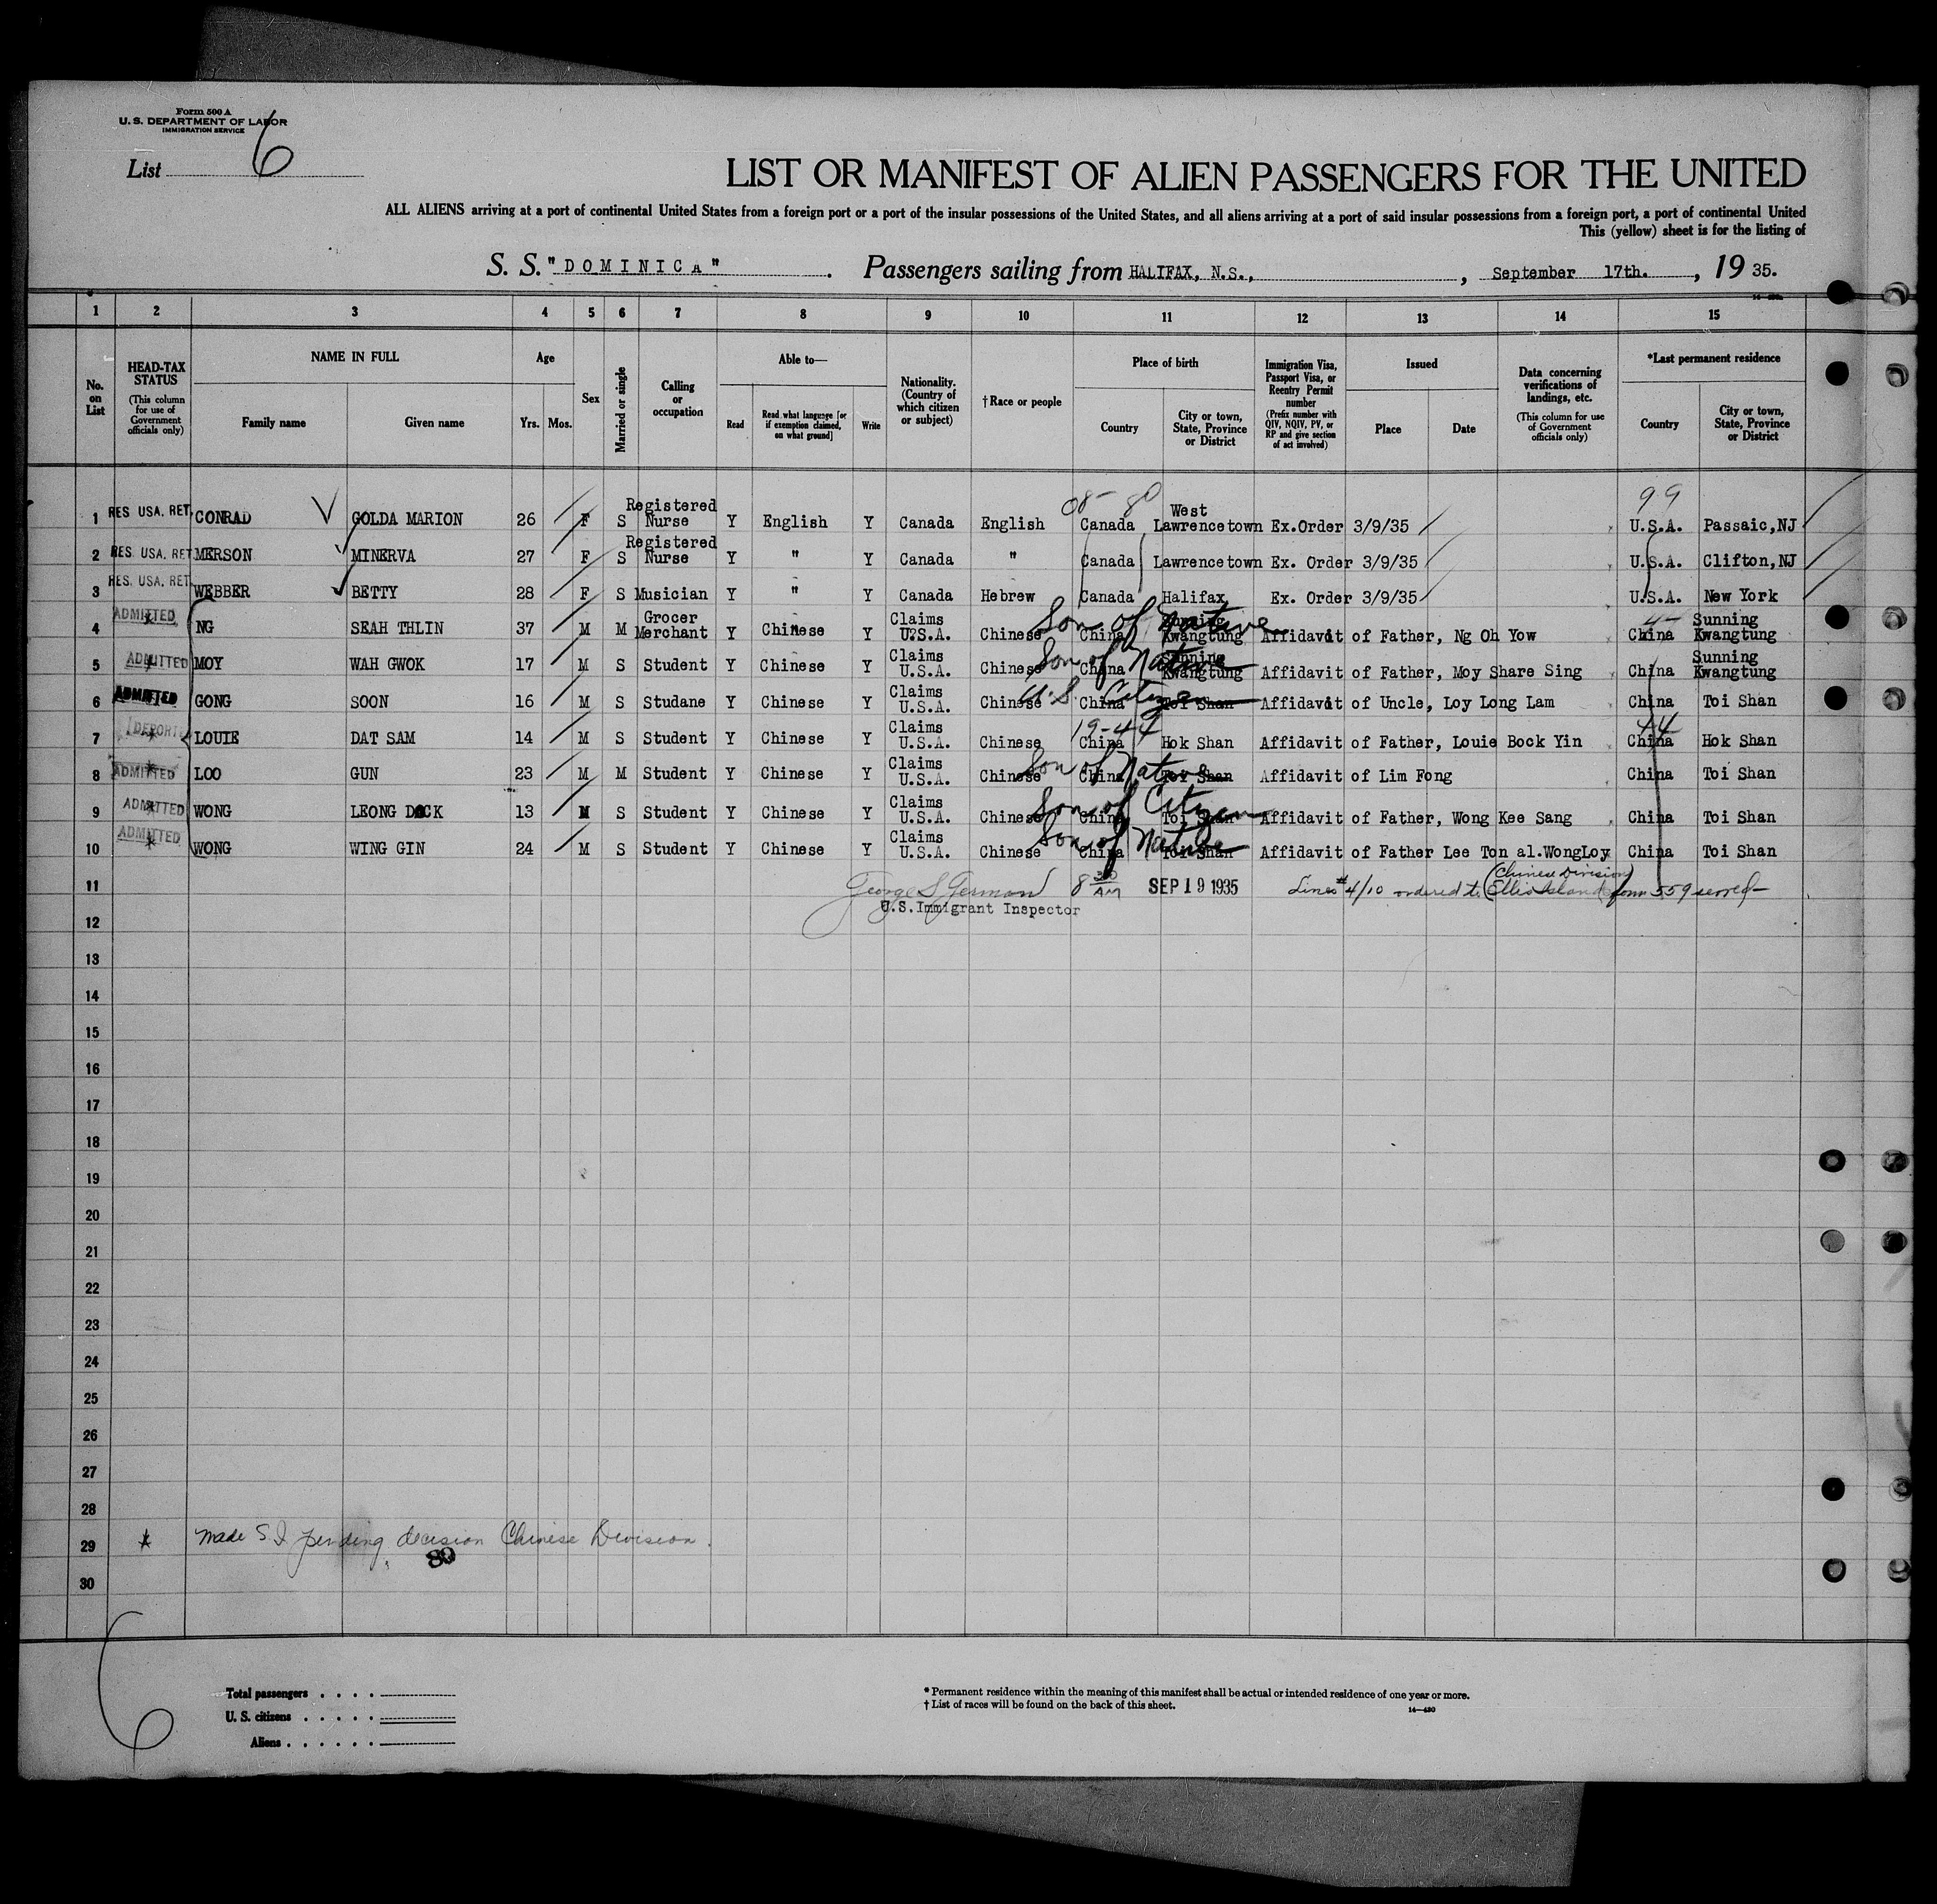 Form 500 A
U. S. DEPARTMENT OF LABOR
IMMIGRATION SERVICE
List 6
LIST OR MANIFEST OF ALIEN PASSENGERS FOR THE UNITED
ALL ALIENS arriving at a port of continental United States from a foreign port or a port of the insular possessions of the United States, and all aliens arriving at a port of said insular possessions from a foreign port, a port of continental United
This (yellow) sheet is for the listing of
S. S. "DOMINICA" . Passengers sailing from HALIFAX, N.S., , September 17th. , 19 35.
1 2 3 4 5 6 7 8 9 10 11 12 13 14 15
No. on List
HEAD-TAX STATUS (This column for use of Government officials only)
NAME IN FULL
Family name
Given name
Age
Yrs. Mos.
Sex
Married or single
Calling or occupation
Able to—
Read
Read what language [or if exemption claimed, on what ground]
Write
Nationality. (Country of which citizen or subject)
†Race or people
Place of birth
Country
City or town, State, Province or District
Immigration Visa, Passport Visa, or Reentry Permit number (Prefix number with QIV, NQIV, PV, or RP and give section of act involved)
Issued
Place
Date
Data concerning verifications of landings, etc. (This column for use of Government officials only)
*Last permanent residence
Country
City or town, State, Province or District
08- 80 99
1 RES USA. RET. CONRAD GOLDA MARION 26 F S Registered Nurse Y English Y Canada English Canada West Lawrencetown Ex.Order 3/9/35 U.S.A. Passaic,NJ
2 RES. USA. RET. MERSON MINERVA 27 F S Registered Nurse Y " Y Canada " Canada Lawrencetown Ex. Order 3/9/35 U.S.A. Clifton,NJ
3 RES. USA. RET. WEBBER BETTY 28 F S Musician Y " Y Canada Hebrew Canada Halifax Ex. Order 3/9/35 U.S.A. New York
4 ADMITTED NG SEAH THLIN 37 M M Grocer Merchant Y Chinese Y Claims U.S.A. Chinese Son of Native China Sunning Kwangtung Affidavit of Father, Ng Oh Yow China Sunning Kwangtung
5 ADMITTED MOY WAH GWOK 17 M S Student Y Chinese Y Claims U.S.A. Chinese Son of Native China Sunning Kwangtung Affidavit of Father, Moy Share Sing China Sunning Kwangtung
6 ADMITTED GONG SOON 16 M S Studane Y Chinese Y Claims U.S.A. Chinese U.S. Citizen China Toi Shan Affidavit of Uncle, Loy Long Lam China Toi Shan
7 DEPORTED LOUIE DAT SAM 14 M S Student Y Chinese Y Claims U.S.A. Chinese 19-44 China Hok Shan Affidavit of Father, Louie Bock Yin 44 China Hok Shan
8 ADMITTED LOO GUN 23 M M Student Y Chinese Y Claims U.S.A. Chinese Son of Native China Toi Shan Affidavit of Lim Fong China Toi Shan
9 ADMITTED WONG LEONG DOCK 13 M S Student Y Chinese Y Claims U.S.A. Chinese Son of Citizen China Toi Shan Affidavit of Father, Wong Kee Sang China Toi Shan
10 ADMITTED WONG WING GIN 24 M S Student Y Chinese Y Claims U.S.A. Chinese Son of Native China Toi Shan Affidavit of Father Lee Ton al.WongLoy China Toi Shan
11 George S German 8 30 AM SEP 19 1935 Lines # 4/10 ordered to (Chinese Division) Ellis Island form 559 served-
U.S.Immigrant Inspector
12
13
14
15
16
17
18
19
20
21
22
23
24
25
26
27
28
29 * Made S I pending decision Chinese Division.
80
30
6
Total passengers . . . .
U. S. citizens . . . . .
Aliens . . . . . .
* Permanent residence within the meaning of this manifest shall be actual or intended residence of one year or more.
† List of races will be found on the back of this sheet.
14—430